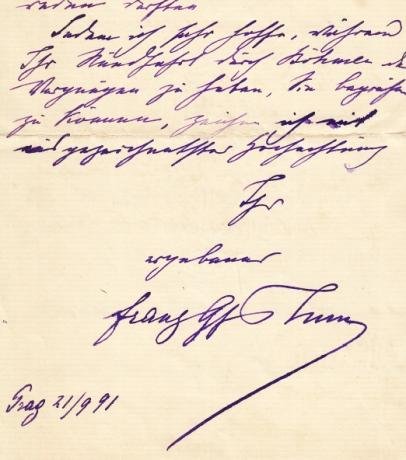 reden dürften
Indem ich sehr hoffe, während
Ihr Rundfahrt durch Böhmen d
Vergnügen zu haben, Sie begrüße
zu können, zeichne ich mit
ausgezeichnetster Hochachtung
Ihr
ergebener
Franz Gf Thun
Prag 21/9 91